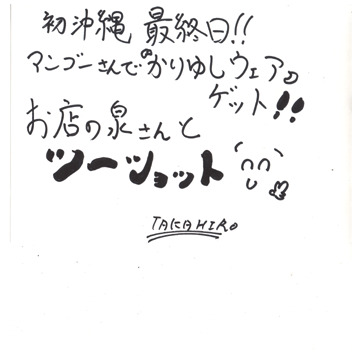 初沖縄 最終日!!
マンゴーさんでのかりゆしウェアの
ゲット!!
お店の泉さんと
ツーショット
TAKAHIRO